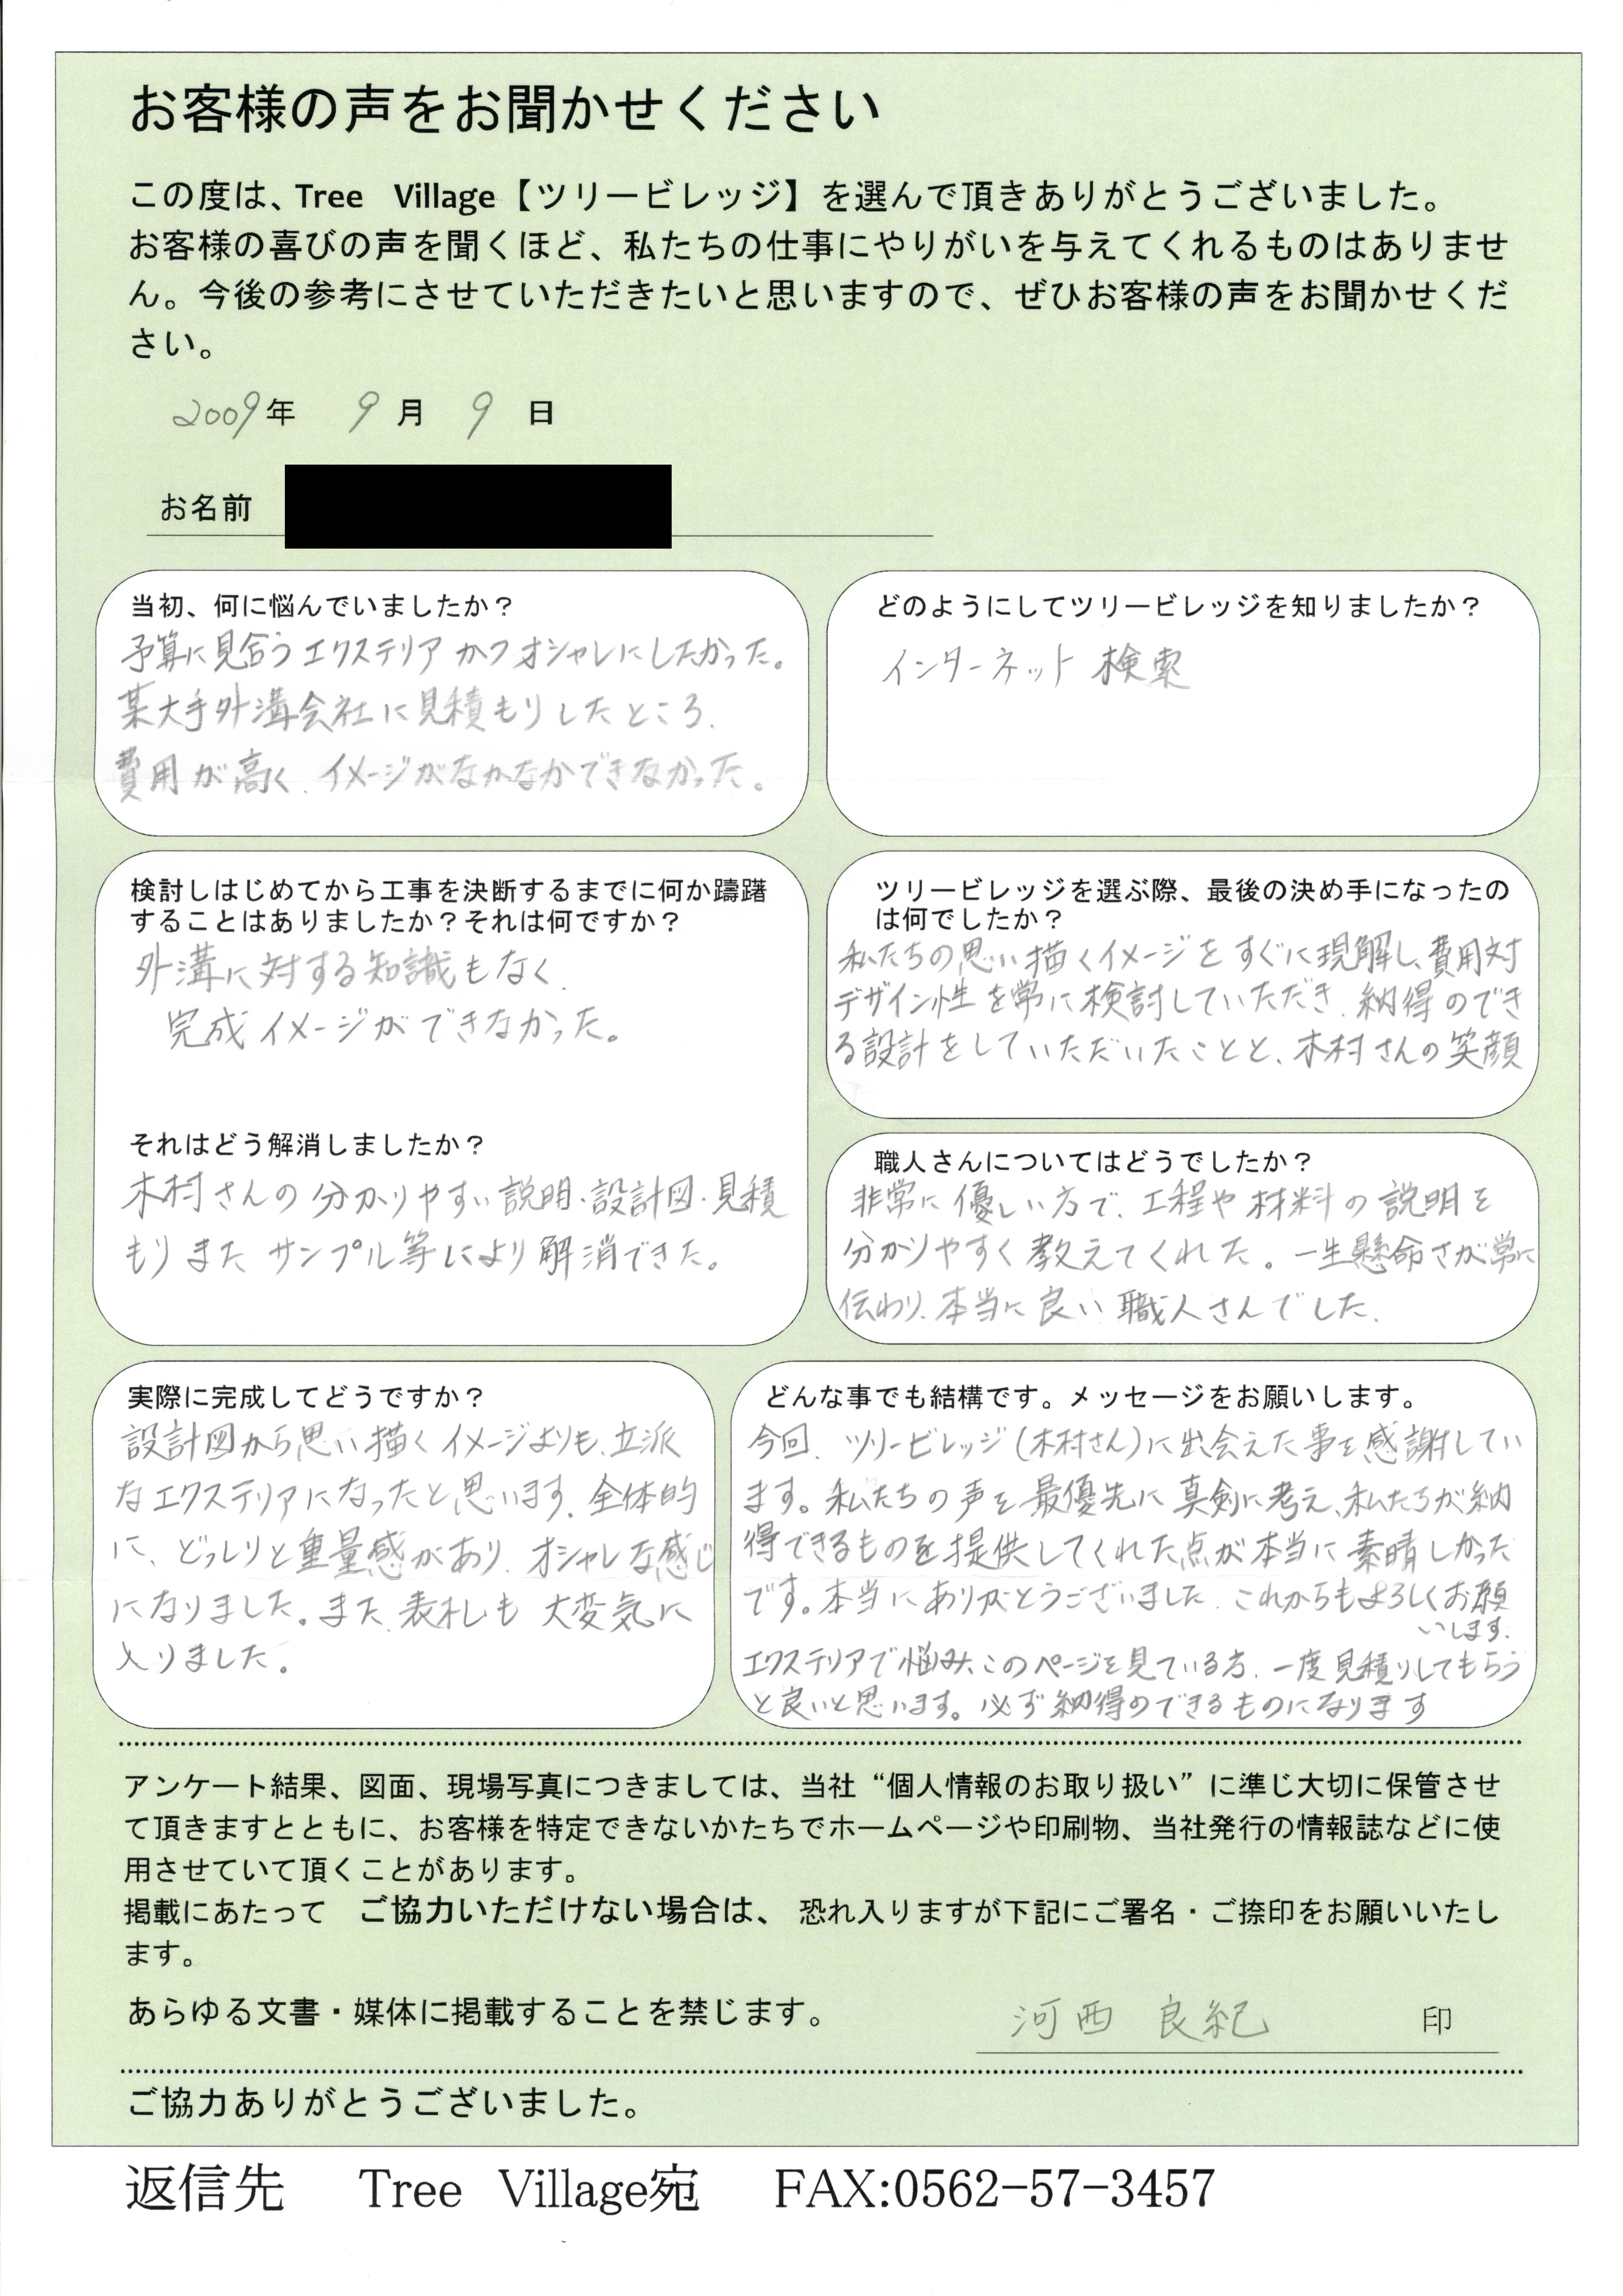 お客様の声をお聞かせください
この度は、Tree Village【ツリービレッジ】を選んで頂きありがとうございました。
お客様の喜びの声を聞くほど、私たちの仕事にやりがいを与えてくれるものはありませ
ん。今後の参考にさせていただきたいと思いますので、ぜひお客様の声をお聞かせくだ
さい。
2009年 9月 9日
お名前
当初、何に悩んでいましたか？
予算に見合うエクステリアかつオシャレにしたかった。
某大手外溝会社に見積もりしたところ、
費用が高く、イメージがなかなかできなかった。
どのようにしてツリービレッジを知りましたか？
インターネット検索
検討しはじめてから工事を決断するまでに何か躊躇
することはありましたか？それは何ですか？
外溝に対する知識もなく、
完成イメージができなかった。
それはどう解消しましたか？
木村さんの分かりやすい説明・設計図・見積
もりまたサンプル等により解消できた。
ツリービレッジを選ぶ際、最後の決め手になったの
は何でしたか？
私たちの思い描くイメージをすぐに現解し、費用対
デザイン性を常に検討していただき、納得のでき
る設計をしていただいたことと、木村さんの笑顔
職人さんについてはどうでしたか？
非常に優しい方で、工程や材料の説明を
分かりやすく教えてくれた。一生懸命さが常に
伝わり、本当に良い職人さんでした。
実際に完成してどうですか？
設計図から思い描くイメージよりも、立派
なエクステリアになったと思います。全体的
に、どっしりと重量感があり、オシャレな感じ
になりました。また、表札も大変気に
入りました。
どんな事でも結構です。メッセージをお願いします。
今回、ツリービレッジ(木村さん)に出会えた事を感謝してい
ます。私たちの声を最優先に真剣に考え、私たちが納
得できるものを提供してくれた点が本当に素晴しかった
です。本当にありがとうございました。これからもよろしくお願
いします。
エクステリアで悩み、このページを見ている方、一度見積りしてもらう
と良いと思います。必ず納得のできるものになります
アンケート結果、図面、現場写真につきましては、当社“個人情報のお取り扱い”に準じ大切に保管させ
て頂きますとともに、お客様を特定できないかたちでホームページや印刷物、当社発行の情報誌などに使
用させていて頂くことがあります。
掲載にあたって ご協力いただけない場合は、 恐れ入りますが下記にご署名・ご捺印をお願いいたし
ます。
あらゆる文書・媒体に掲載することを禁じます。 河西 良紀 印
ご協力ありがとうございました。
返信先 Tree Village宛 FAX:0562-57-3457